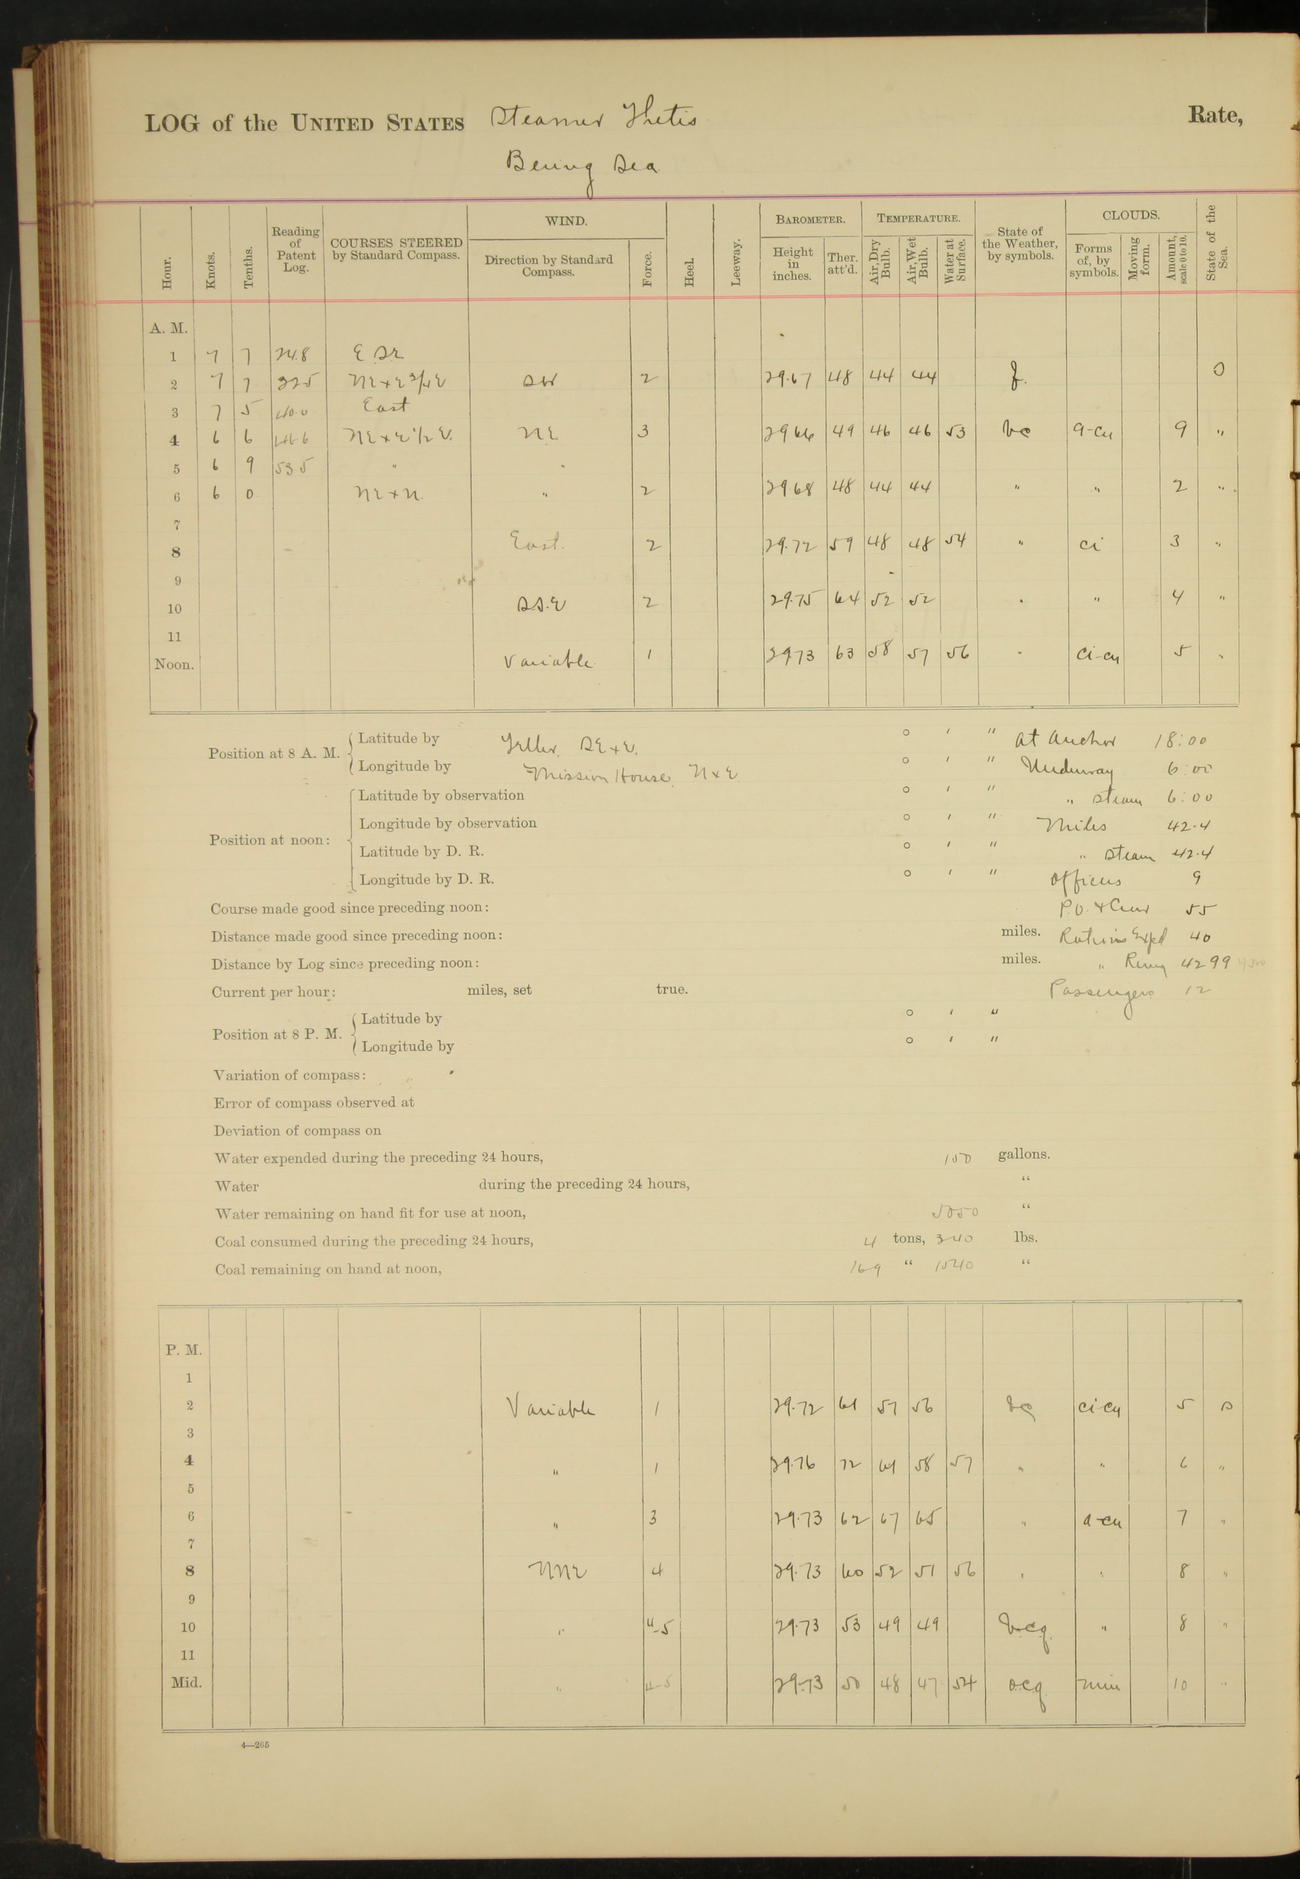 LOG of the UNITED STATES Steamer Thetis Rate,
Bering Sea
Hour. Knots. Tenths. Reading of Patent Log. COURSES STEERED by Standard Compass. WIND. Direction by Standard Compass. Force. Heel. Leeway. BAROMETER. Height in inches. Ther. att'd. TEMPERATURE. Air, Dry Bulb. Air, Wet Bulb. Water at Surface. State of the Weather, by symbols. CLOUDS. Forms of, by symbols. Moving form. Amount, scale 0 to 10. State of the Sea.
A. M.
1 7 7 24.8 E SE
2 7 7 32.5 NE x E 3/4 E SW 2 29.67 48 44 44 f. S
3 7 5 40.0 East
4 6 6 46.6 NE x E 1/2 E. NE 3 29 66 49 46 46 53 bc a-cu 9 "
5 6 9 53 5 "
6 6 0 NE x N. " 2 29 68 48 44 44 " " 2 "
7
8 East 2 29.72 59 48 48 54 " ci 3 "
9
10 SS.E 2 29.75 64 52 52 " " 4 "
11
Noon. Variable 1 29 73 63 58 57 56 " ci-cu 5 "
Position at 8 A. M. Latitude by Teller SE x E. ° ′ ″ At Anchor 18:00
Longitude by Mission House, N x E ° ′ ″ Underway 6:00
Position at noon: Latitude by observation ° ′ ″ " Steam 6:00
Longitude by observation ° ′ ″ Miles 42.4
Latitude by D. R. ° ′ ″ " Steam 42.4
Longitude by D. R. ° ′ ″ Officers 9
Course made good since preceding noon: P.O. & Crew 55
Distance made good since preceding noon: miles. Rations Expd 40
Distance by Log since preceding noon: miles. " Remg 4299
Current per hour: miles, set true. Passengers 12
Position at 8 P. M. Latitude by ° ′ ″
Longitude by ° ′ ″
Variation of compass:
Error of compass observed at
Deviation of compass on
Water expended during the preceding 24 hours, 150 gallons.
Water during the preceding 24 hours, "
Water remaining on hand fit for use at noon, 5050 "
Coal consumed during the preceding 24 hours, 4 tons, 340 lbs.
Coal remaining on hand at noon, 169 " 1540 "
P. M.
1
2 Variable 1 29.72 61 57 56 bc ci-cu 5 S
3
4 " 1 29.76 72 61 58 57 " " 6 "
5
6 " 3 29.73 62 67 65 " a-cu 7 "
7
8 NNE 4 29.73 60 52 51 56 " " 8 "
9
10 " 4-5 29.73 53 49 49 bcq " 8 "
11
Mid. " 4-5 29.73 50 48 47 54 ocq nim 10 "
4—265